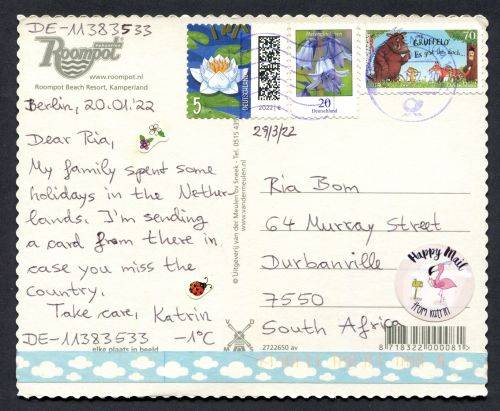 DE-11383533
Roompot
Vakanties
www.roompot.nl
Roompot Beach Resort, Kamperland
Berlin, 20.01.'22
Dear Ria,
My family spent some
holidays in the Nether-
lands. I'm sending
a card from there in
case you miss the
country.
Take care, Katrin
DE-11383533 -1°C
elke plaats in beeld
© Uitgeverij van der Meulen bv Sneek - Tel. 0515 43
www.vandermeulen.nl
2722650 av
5
DEUTSCHLAND
2022
20
Deutschland
GRÜFFELO
70
29/3/22
Ria Bom
64 Murray Street
Durbanville
7550
South Africa
Happy Mail
from Katrin
8 718322 000081